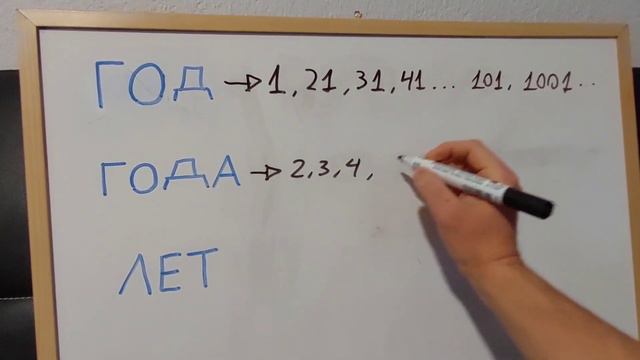 ГОД → 1, 21, 31, 41... 101, 1001..
ГОДА → 2, 3, 4,
ЛЕТ